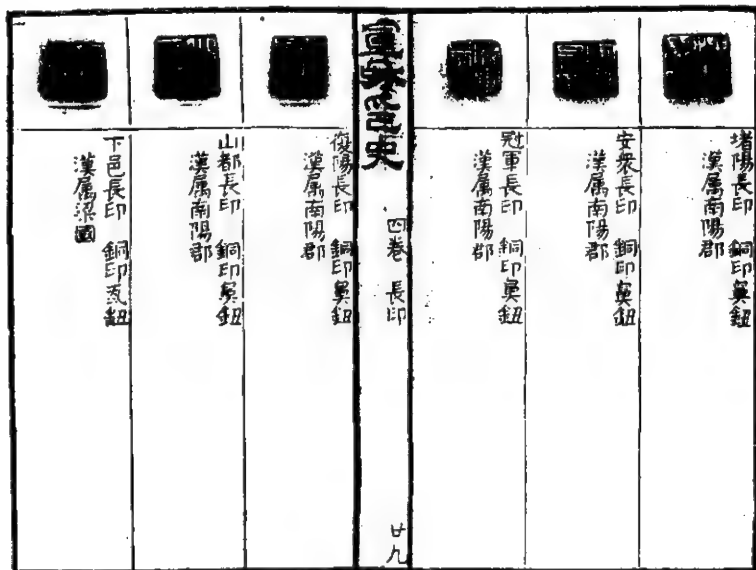 堵陽長印　銅印鼻鈕
漢属南陽郡
安衆長印　銅印鼻鈕
漢属南陽郡
冠軍長印　銅印鼻鈕
漢属南陽郡
宣和印史　四卷　長印　廿九
復陽長印　銅印鼻鈕
漢属南陽郡
山都長印　銅印鼻鈕
漢属南陽郡
下邑長印　銅印瓦鈕
漢属梁國